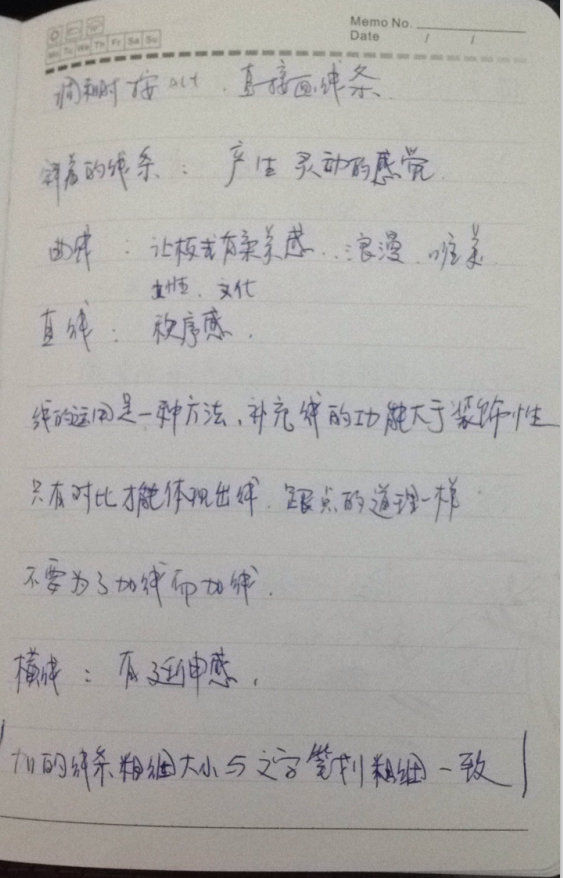 Memo No.
Mo Tu We Th Fr Sa Su
Date / /
调和时按 ALt、直接画线条
斜着的线条：产生灵动的感觉.
曲线：让板式有柔美感...浪漫、唯美
女性、文化
直线：秩序感.
线的运用是一种方法、补充线的功能大于装饰性
只有对比才能体现出线、跟点的道理一样
不要为了加线而加线.
横线：有延伸感,
加的线条粗细大小与文字笔划粗细一致